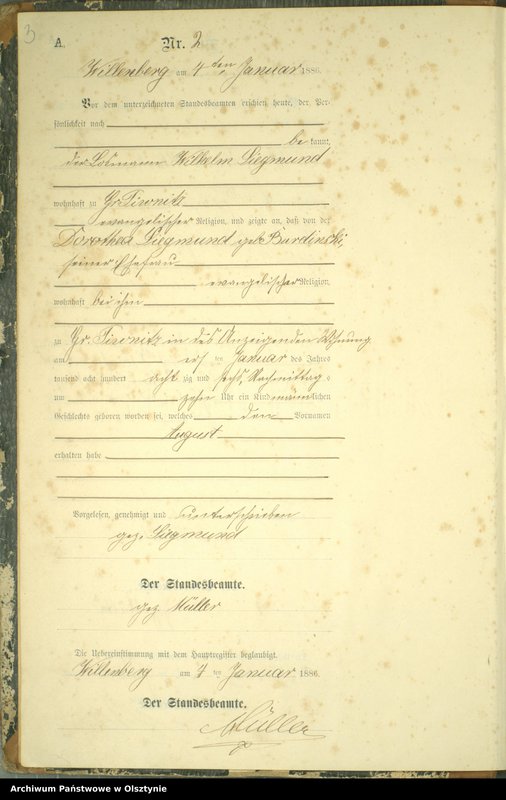 3
A.
Nr. 2
Willenberg am 4ten Januar 1886.
Vor dem unterzeichneten Standesbeamten erschien heute, der Per-
sönlichkeit nach
be kannt,
der Losmann Wilhelm Siegmund
wohnhaft zu Gr. Piwnitz
evangelischer Religion, und zeigte an, daß von der
Dorothea Siegmund geb. Burdinski
seiner Ehefrau
evangelischer Religion
wohnhaft bei ihm
zu Gr. Piwnitz in des Anzeigenden Wohnung
am ersten Januar des Jahres
tausend acht hundert acht zig und sechs, Nachmittag s
um zehn Uhr ein Kind männlichen
Geschlechts geboren worden sei, welches den Vornamen
August
erhalten habe
Vorgelesen, genehmigt und unterschrieben
gez. Siegmund
Der Standesbeamte.
gez. Müller
Die Uebereinstimmung mit dem Hauptregister beglaubigt.
Willenberg am 4 ten Januar 1886.
Der Standesbeamte.
Müller
Archiwum Państwowe w Olsztynie